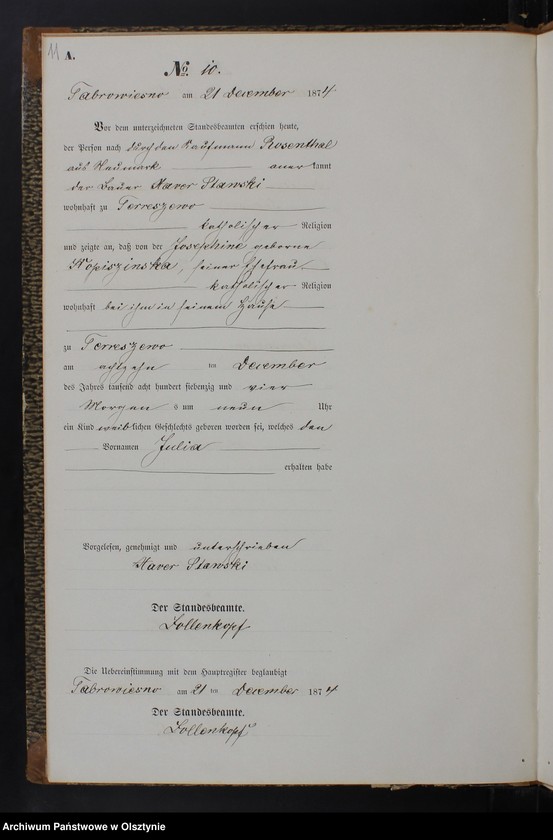 11 A.
No. 10.
Fabrowiesno am 21 December 1874
Vor dem unterzeichneten Standesbeamten erschien heute,
der Person nach durch den Kaufmann Rosenthal
aus Neumark anerkannt
der Bauer Xaver Stawski
wohnhaft zu Terreszewo
katholischer Religion
und zeigte an, daß von der Josephine geborne
Kopiszinska, seiner Ehefrau
katholischer Religion
wohnhaft bei ihm in seinem Hause
zu Terreszewo
am achtzehn ten December
des Jahres tausend acht hundert siebenzig und vier
Morgens um neun Uhr
ein Kind weiblichen Geschlechts geboren worden sei, welches den
Vornamen Julia
erhalten habe
Vorgelesen, genehmigt und unterschrieben
Xaver Stawski
Der Standesbeamte.
Lollenkopf
Die Uebereinstimmung mit dem Hauptregister beglaubigt
Fabrowiesno am 21 ten December 1874
Der Standesbeamte.
Lollenkopf
Archiwum Państwowe w Olsztynie